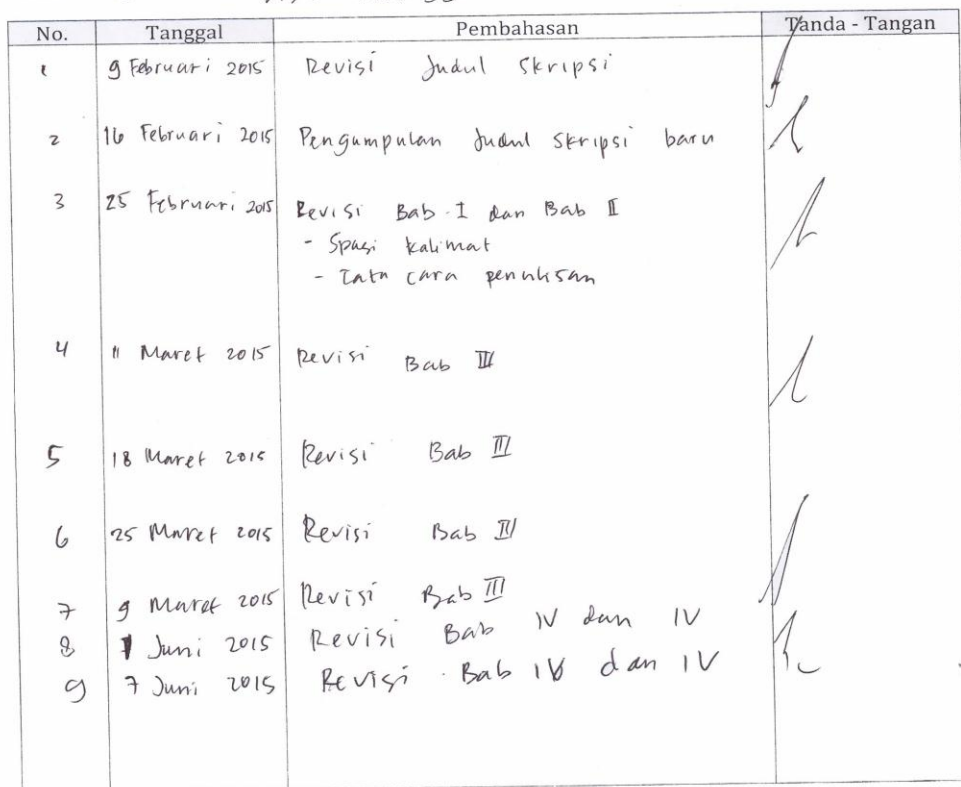 No. Tanggal Pembahasan Tanda - Tangan
1 9 Februari 2015 Revisi Judul Skripsi
2 16 Februari 2015 Pengumpulan Judul Skripsi baru
3 25 Februari 2015 Revisi Bab I dan Bab II
- Spasi kalimat
- Tata cara penulisan
4 11 Maret 2015 Revisi Bab III
5 18 Maret 2015 Revisi Bab III
6 25 Maret 2015 Revisi Bab III
7 9 Maret 2015 Revisi Bab III
8 1 Juni 2015 Revisi Bab IV dan IV
9 7 Juni 2015 Revisi Bab IV dan IV